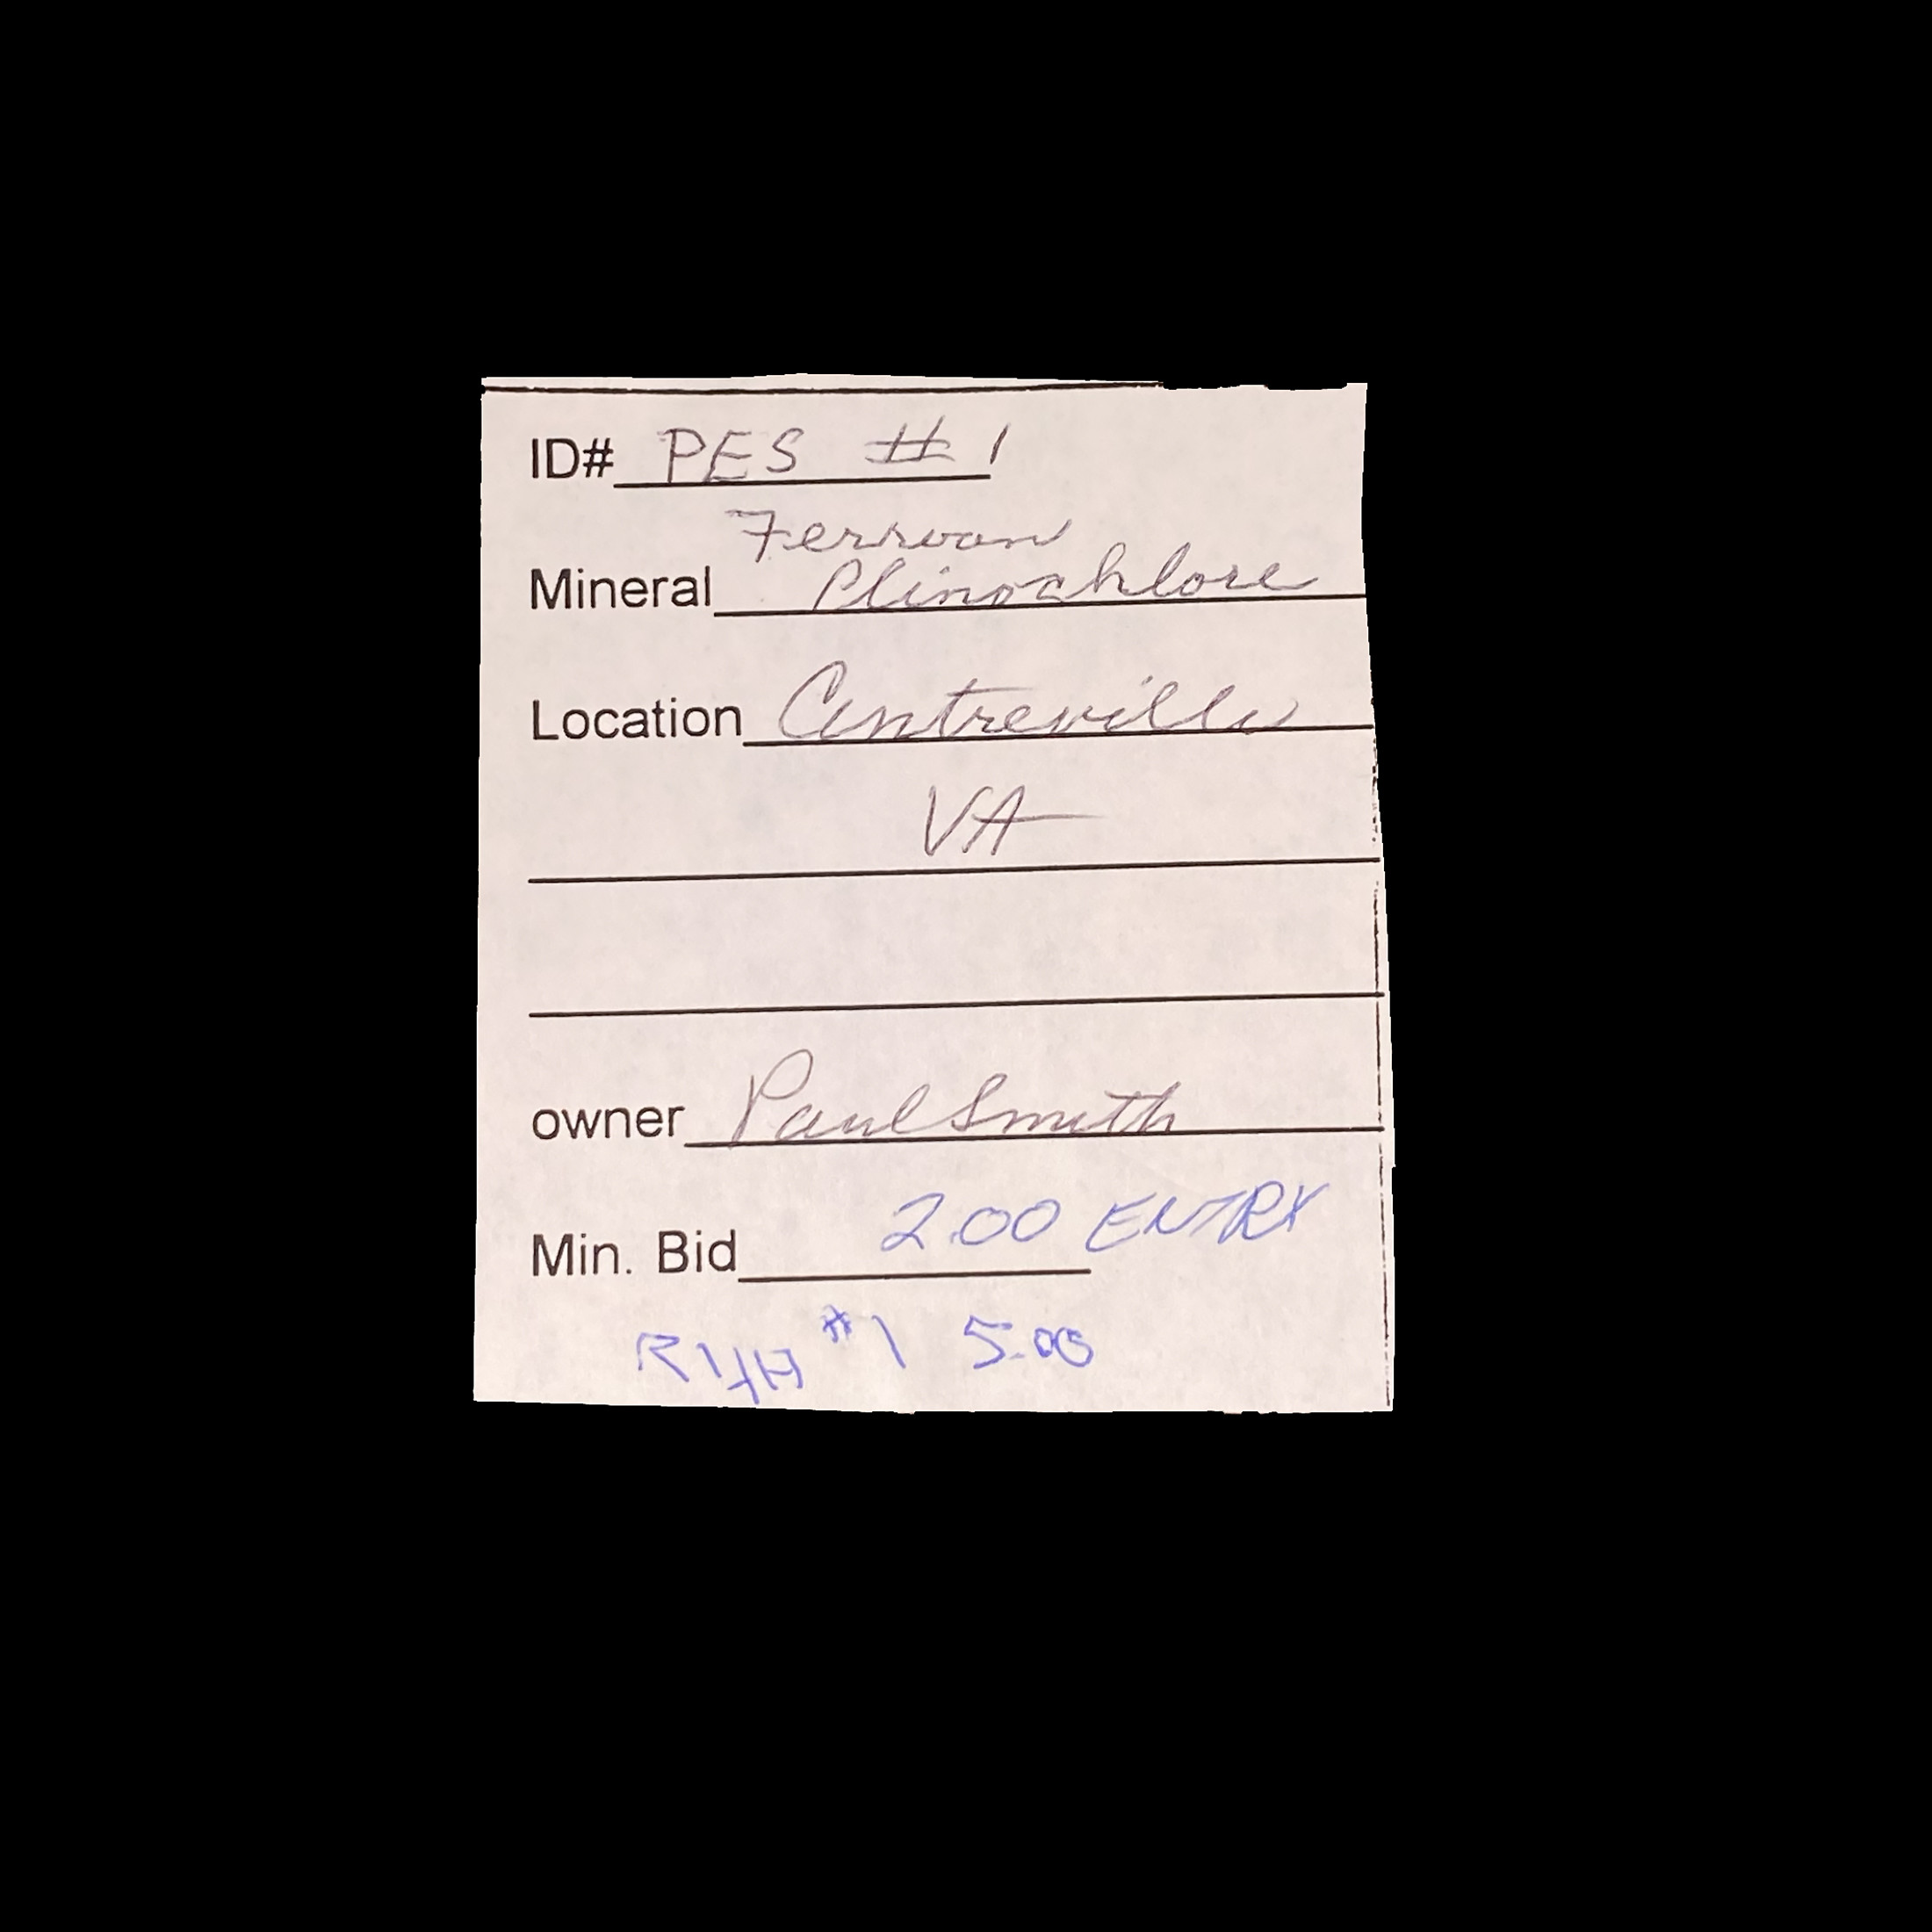 ID# PES #1
Ferroan
Mineral Clinochlore
Location Centreville
VA
owner Paul Smith
Min. Bid 2.00 ENTRY
#1 5.00